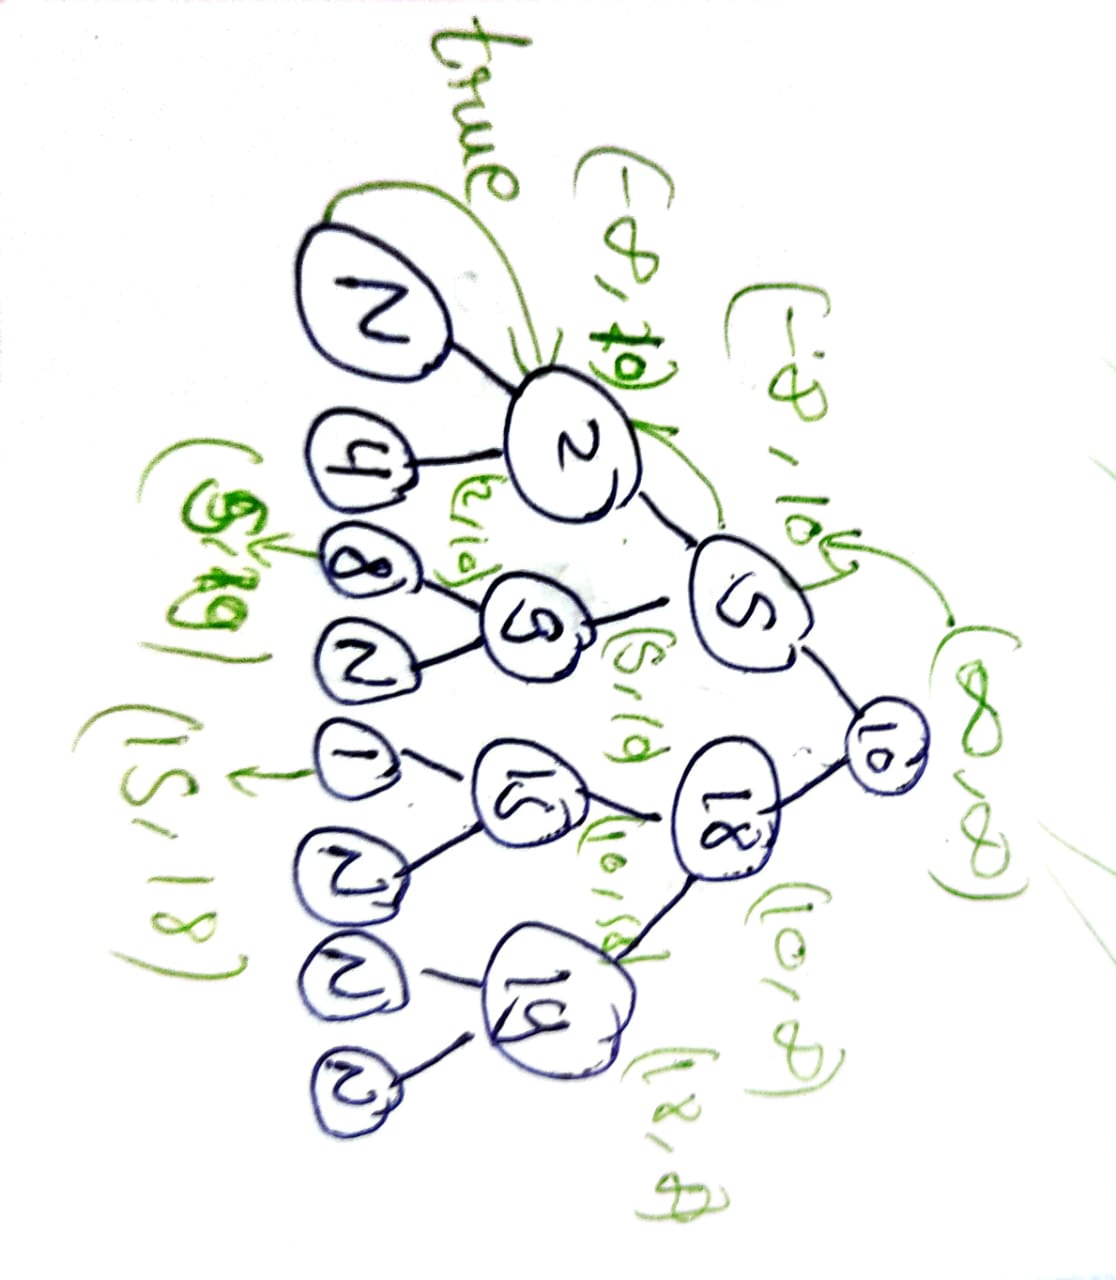 (∞,∞)
10
(-∞, 10
5
18
(10, ∞)
(-∞, 10)
(5, 10)
(10,
(18, ∞)
2
9
15
19
true
(2, 10)
N
4
8
N
1
N
N
N
(15, 18)